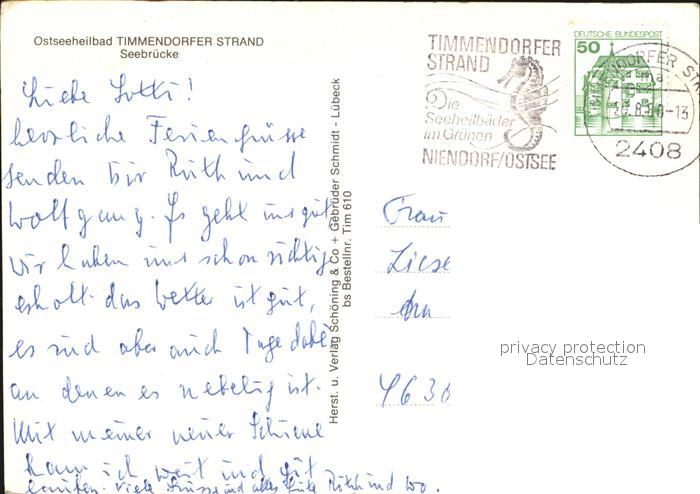 Ostseeheilbad TIMMENDORFER STRAND
Seebrücke
Liebe Lotti!
herzliche Feriengrüsse
senden dir Ruth und
Wolfgang. Es geht uns gut
wir haben uns schon richtig
erholt. das Wetter ist gut,
es sind aber auch Tage dabei
an denen es nebelig ist.
Mit meiner neuen Schiene
kann ich weit und gut
laufen. Viele Grüsse und alles Gute Ruth und Wo.
Herst. u. Verlag Schöning & Co + Gebrüder Schmidt - Lübeck
bs Bestellnr. Tim 610
TIMMENDORFER
STRAND
Die
Seeheilbäder
im Grünen
NIENDORF/OSTSEE
DEUTSCHE BUNDESPOST
50
2408
Frau
Liese
4630
privacy protection
Datenschutz